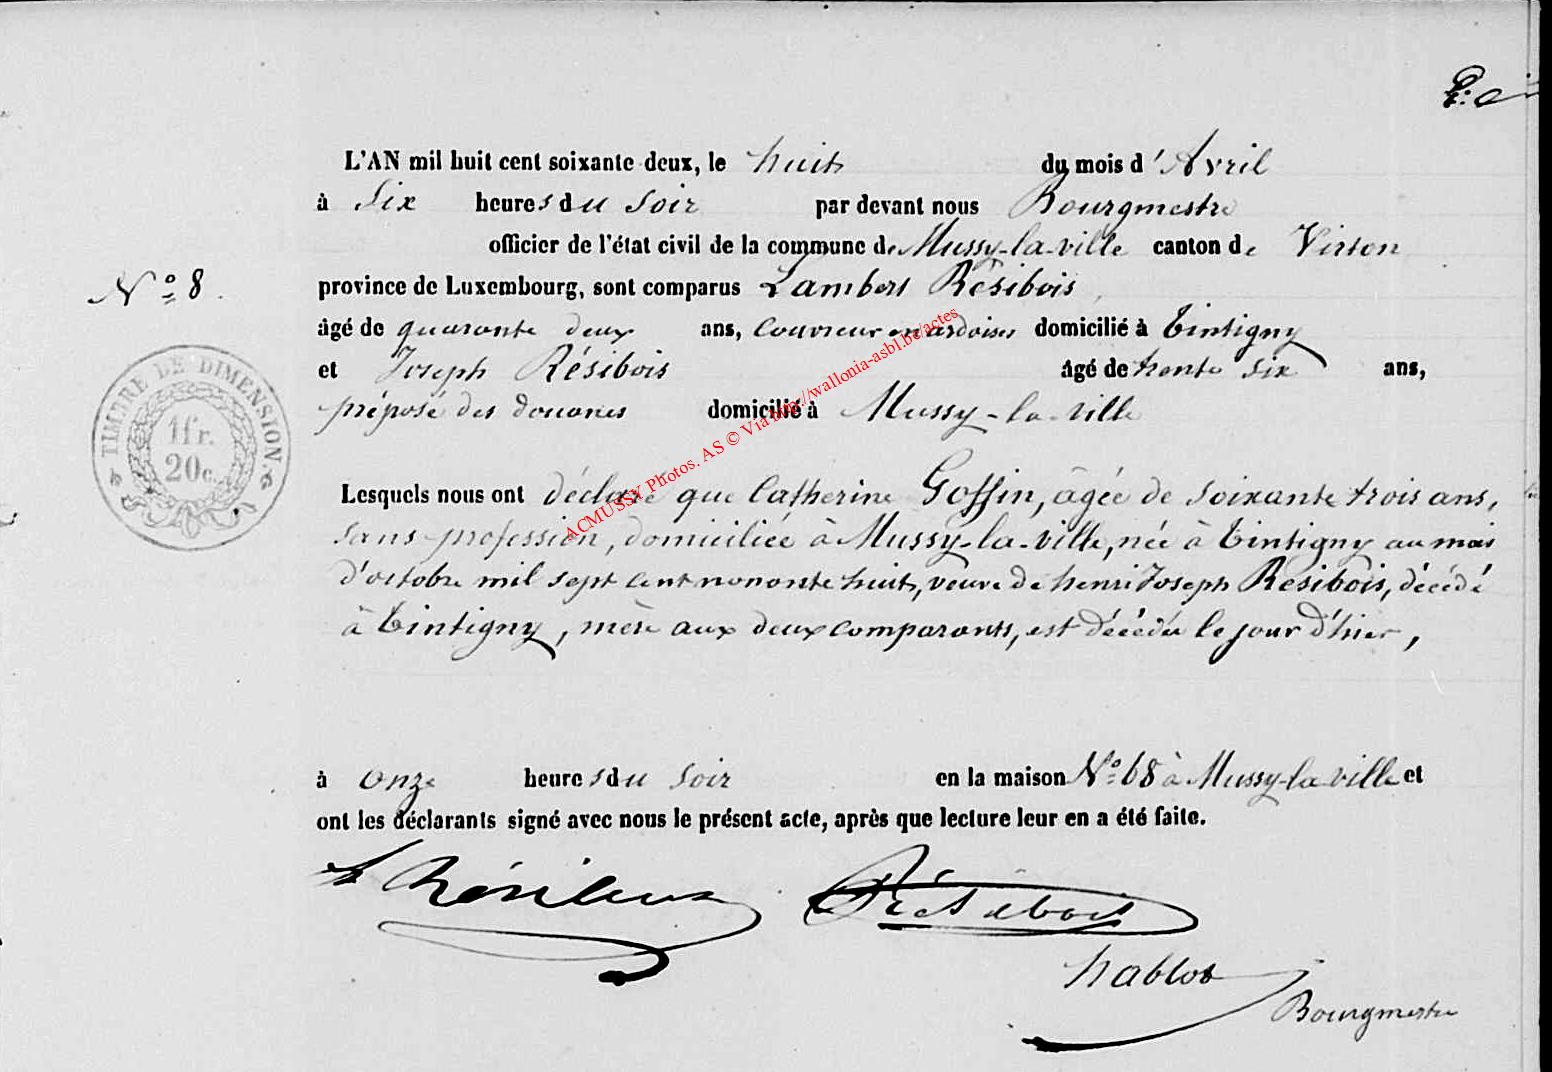 L'AN mil huit cent soixante-deux, le huit du mois d'Avril
à Six heures du soir par devant nous Bourgmestre
officier de l'état civil de la commune de Mussy-la-ville canton de Virton
N° 8.
province de Luxembourg, sont comparus Lambert Résibois
âgé de quarante deux ans, couvreur en ardoises domicilié à Tintigny
et Joseph Résibois âgé de trente six ans,
préposé des douanes domicilié à Mussy-la-ville
TIMBRE DE DIMENSION.
1 fr.
20 c.
Lesquels nous ont déclaré que Catherine Goffin, âgée de soixante trois ans,
sans profession, domiciliée à Mussy-la-ville, née à Tintigny au mois
d'octobre mil sept cent nonante huit, veuve de henri Joseph Résibois, décédé
à Tintigny, mère aux deux comparants, est décédée le jour d'hier,
à onze heures du soir en la maison N° 68 à Mussy-la-ville et
ont les déclarants signé avec nous le présent acte, après que lecture leur en a été faite.
Résibois
hablot
Bourgmestre
ACMUSSY Photos. AS © Via http://wallonia-asbl.be/actes